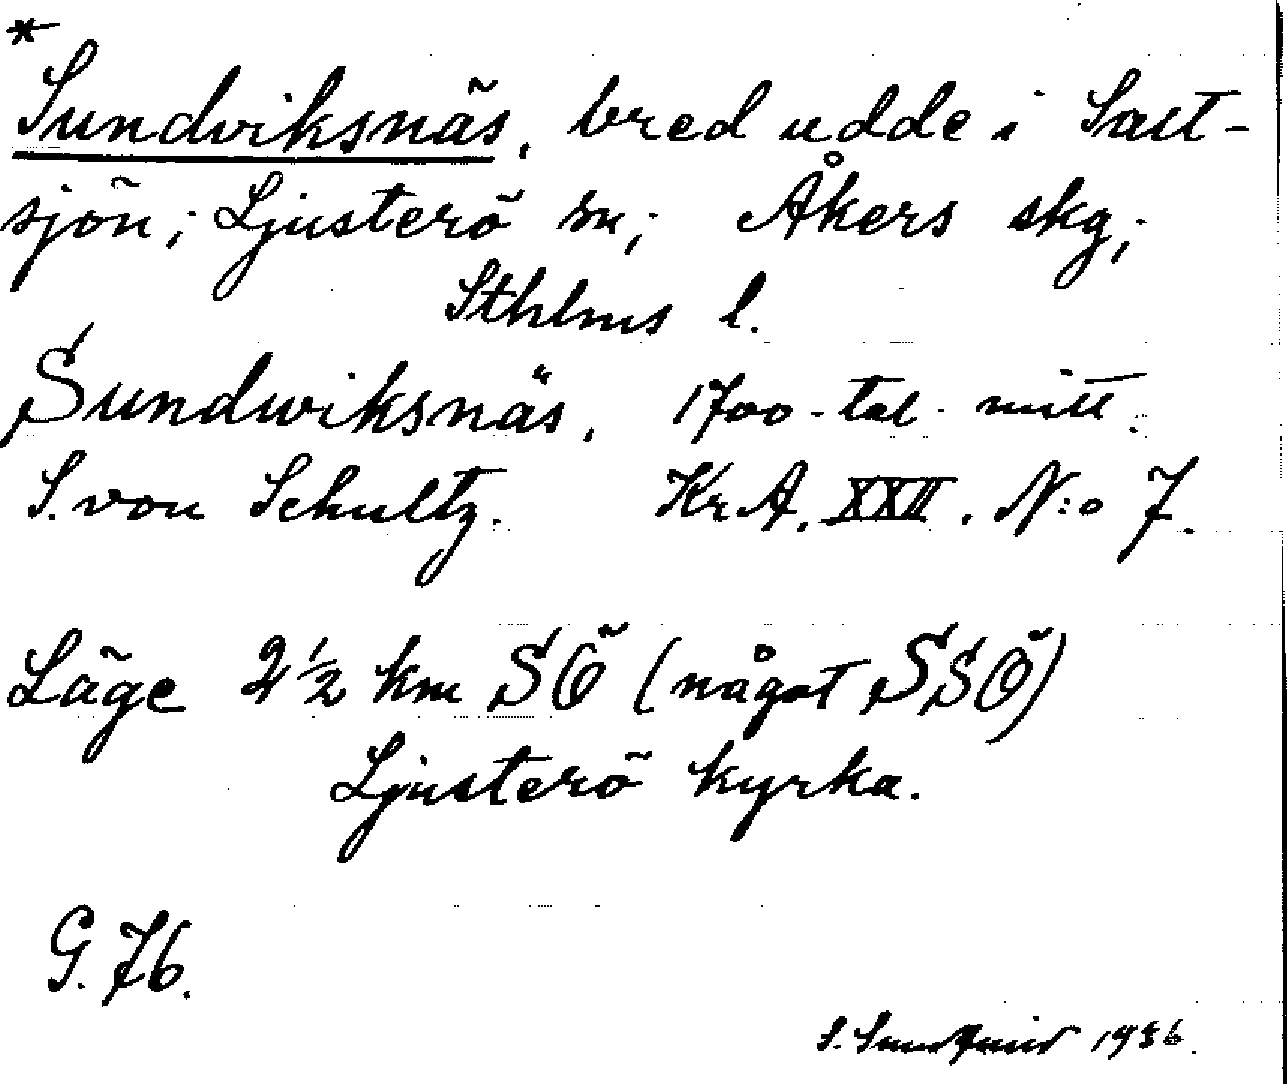 *
Sundviksnäs, bred udde i Salt-
sjön; Ljusterö sn; Åkers skg;
Sthlms l.
Sundwiksnäs, 1700-tal. mitt.
S. von Schultz. KrA. XXII. N:o 7.
Läge 2 1/2 km SÖ (något SSÖ)
Ljusterö kyrka.
G. 76.
S. 1936.